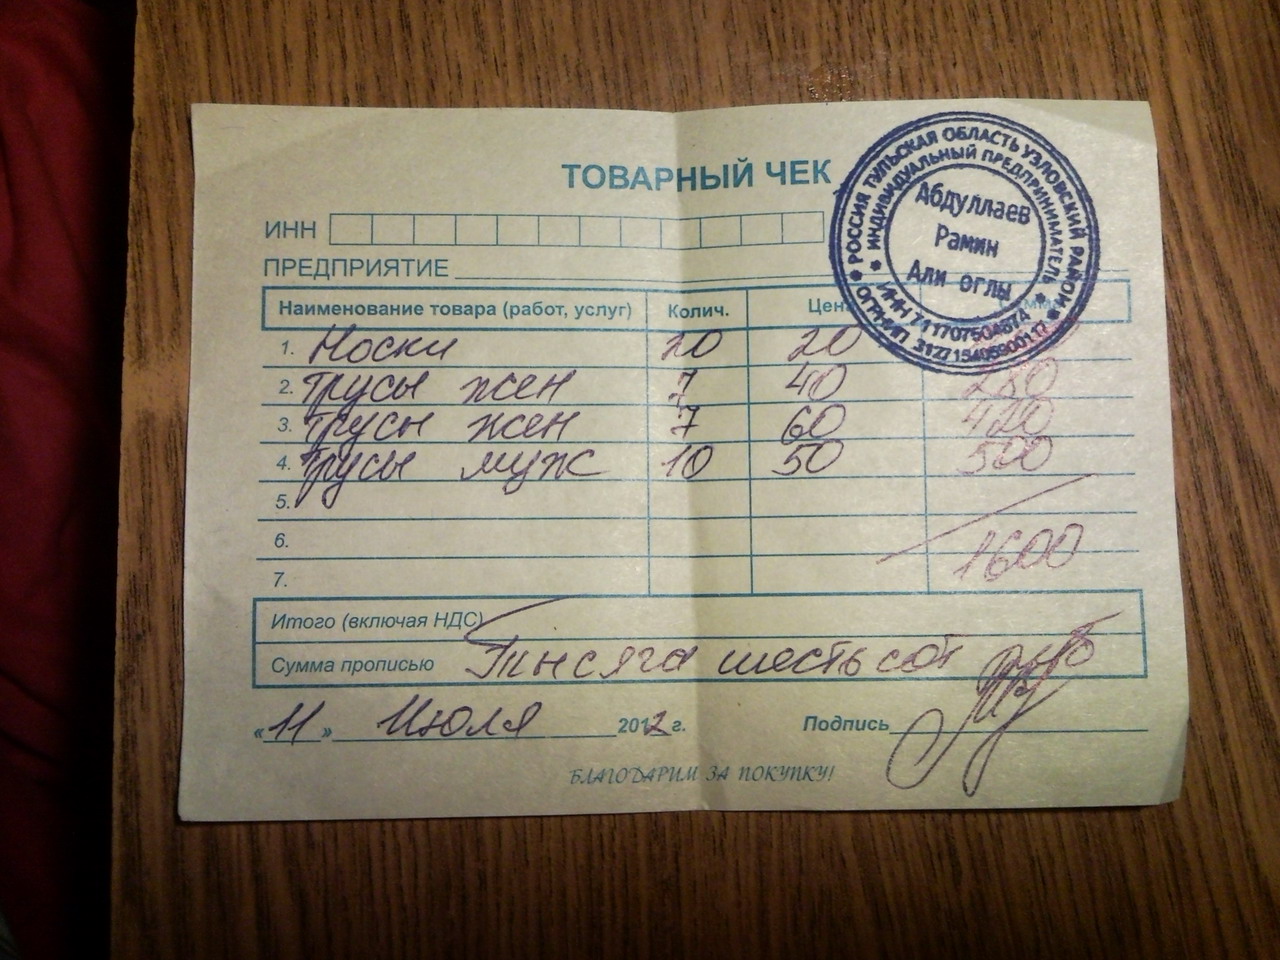 ТОВАРНЫЙ ЧЕК
РОССИЯ ТУЛЬСКАЯ ОБЛАСТЬ УЗЛОВСКИЙ РАЙОН
ИНДИВИДУАЛЬНЫЙ ПРЕДПРИНИМАТЕЛЬ
Абдуллаев
Рамин
Али оглы
ИНН
ОГРНИП
ИНН
ПРЕДПРИЯТИЕ
Наименование товара (работ, услуг) Колич.
1. Носки 20 20
2. трусы жен 7 40 280
3. трусы жен 7 60 420
4. трусы муж 10 50 500
5.
6. 1600
7.
Итого (включая НДС)
Сумма прописью Тысяга шесть сот руб
«11» Июля 2012 г. Подпись
БЛАГОДАРИМ ЗА ПОКУПКУ!